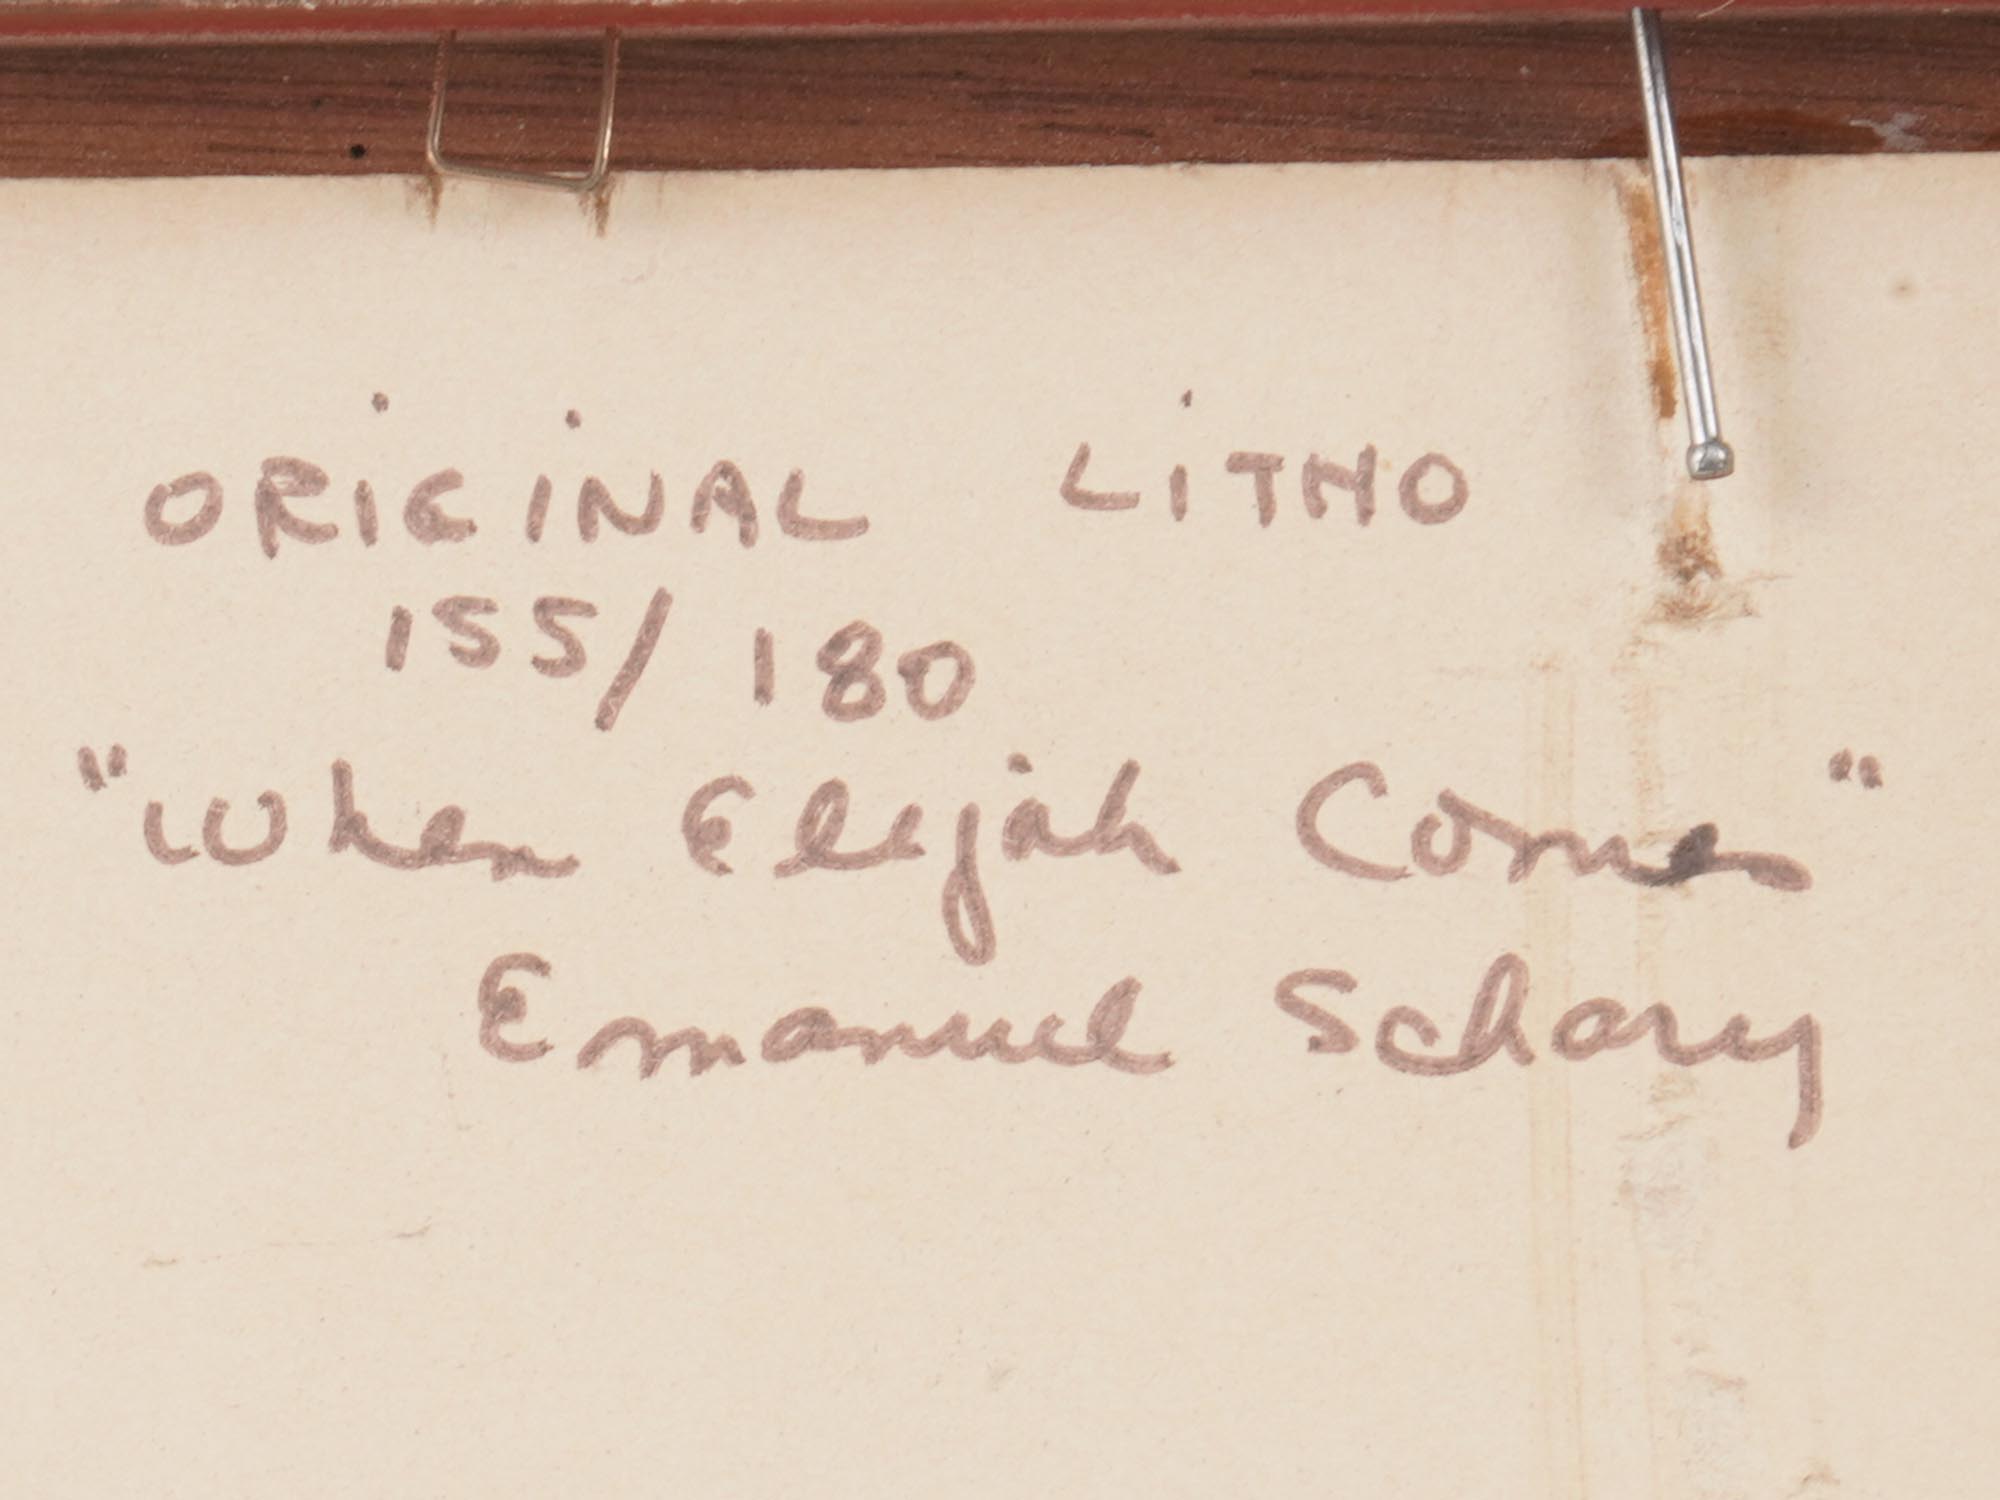 ORiGiNAL LiTHO
155/180
"When Elijah Comes"
Emanuel Schary